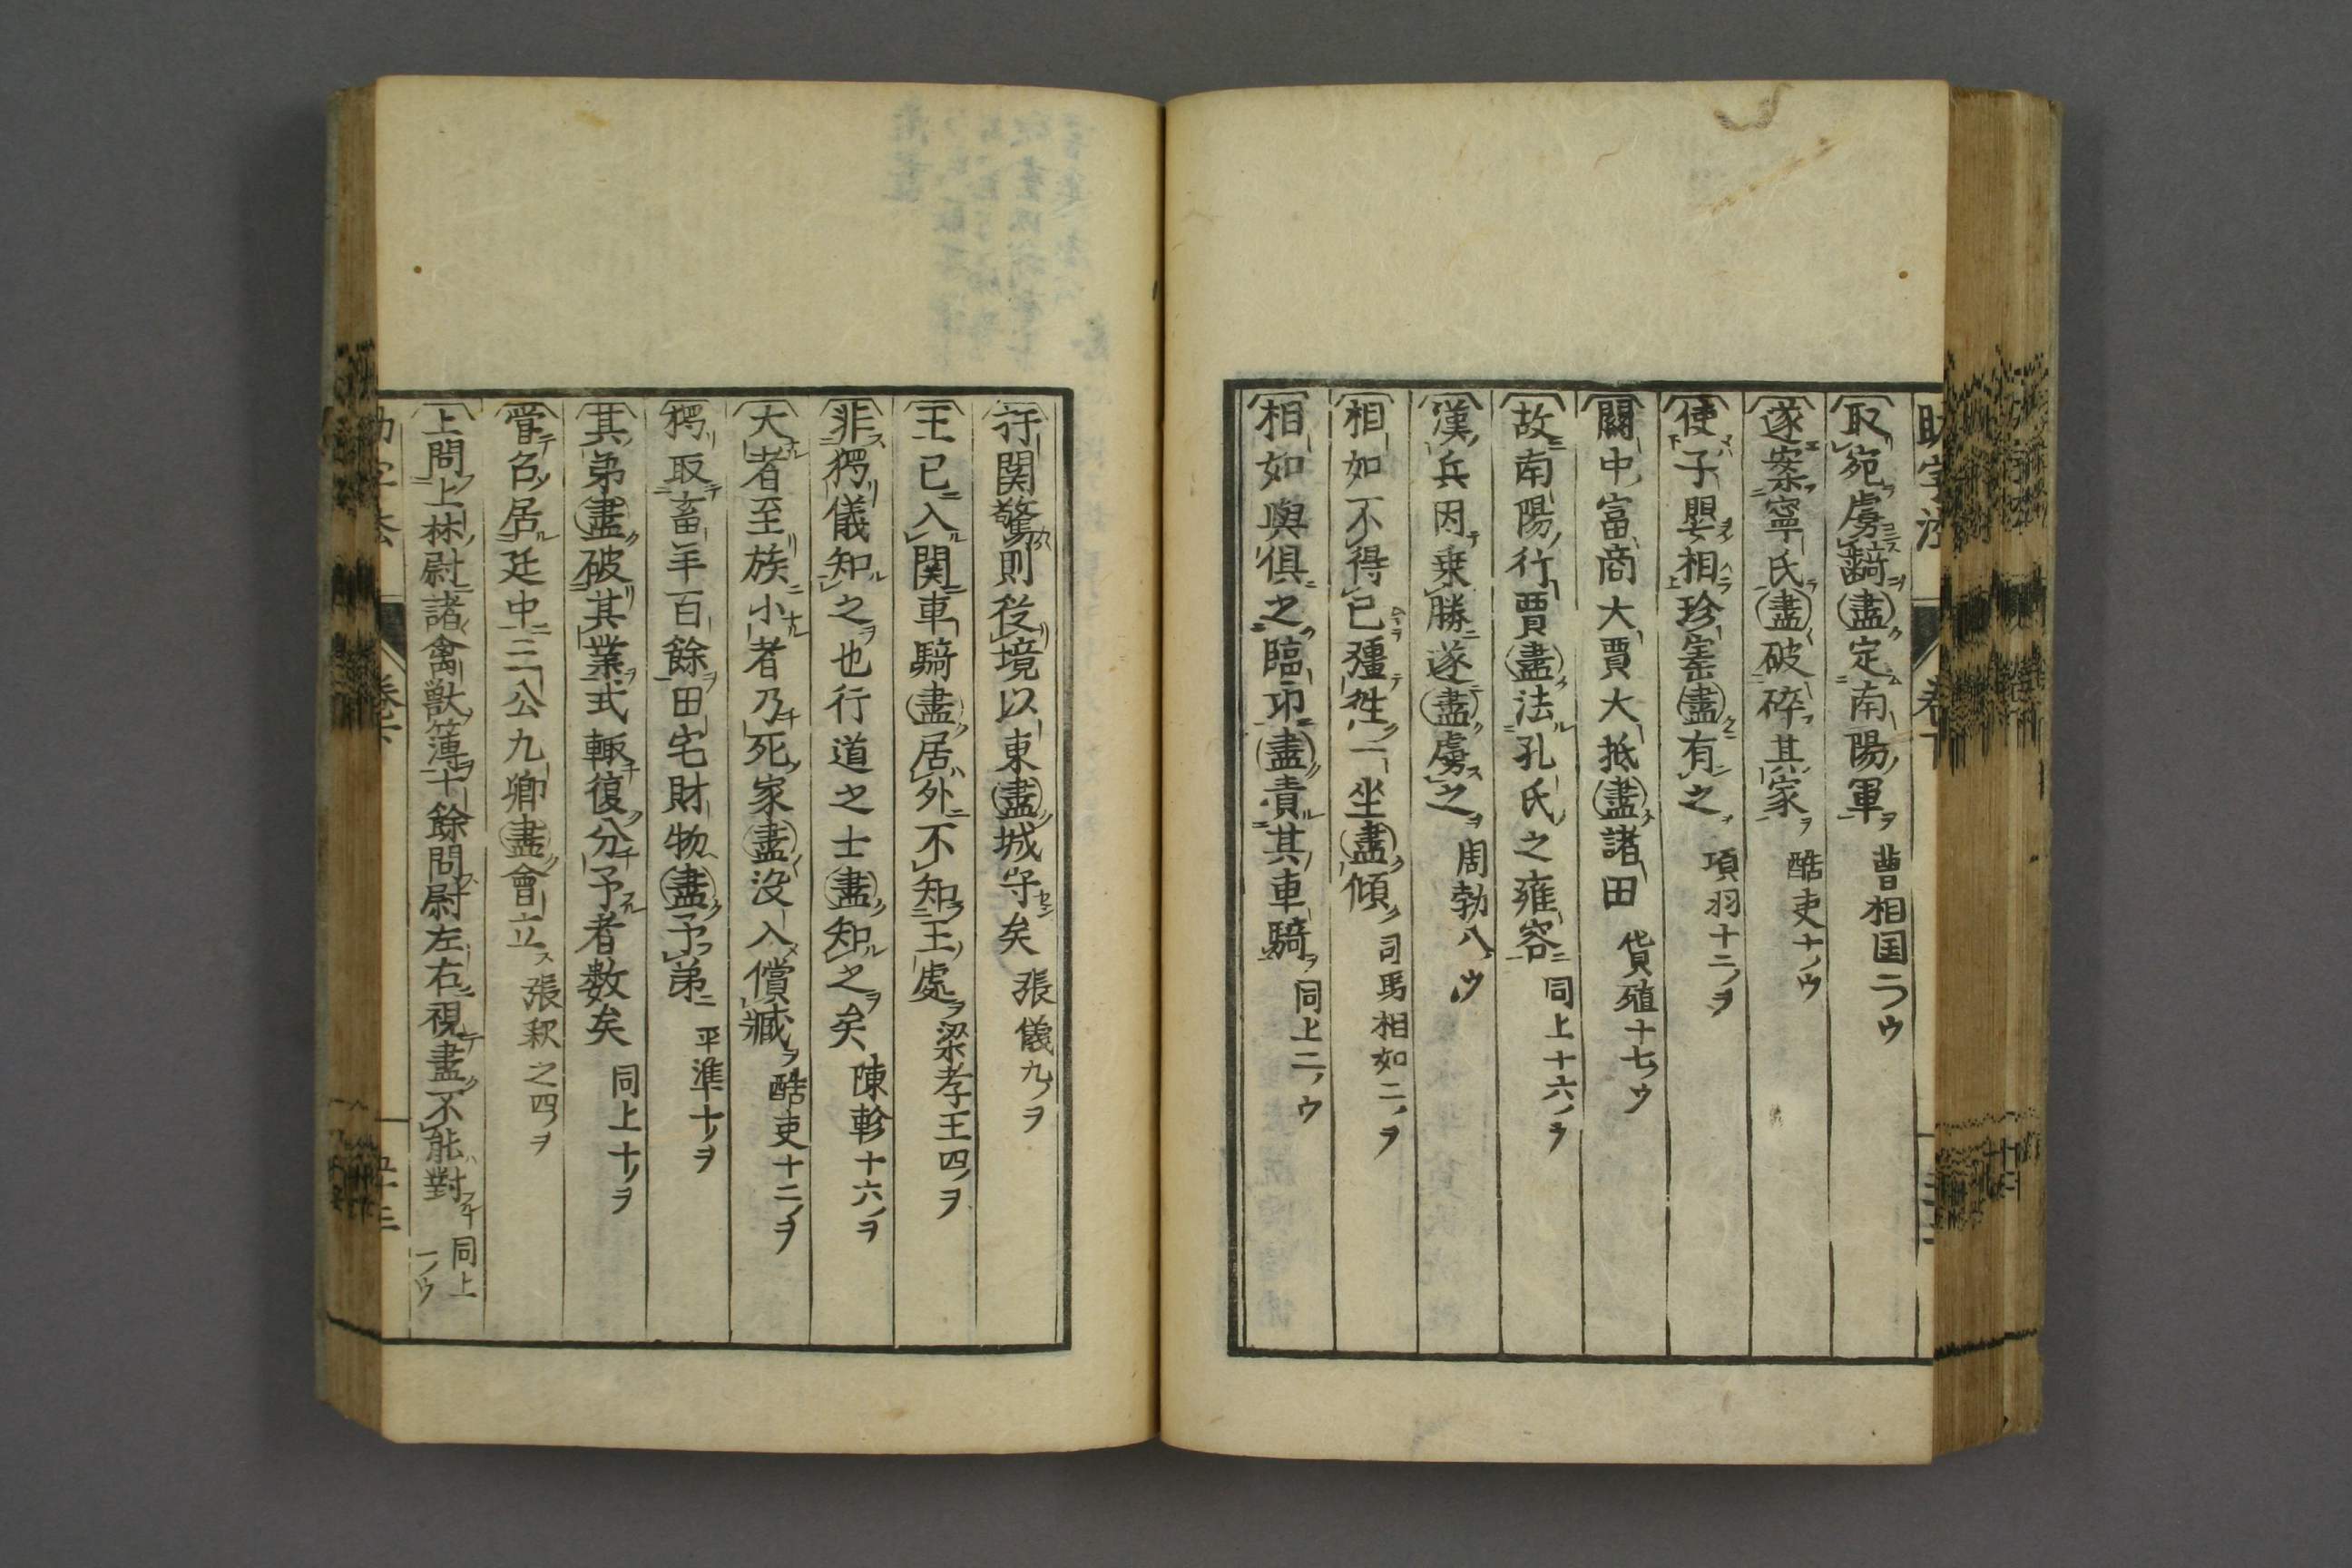 取宛虜齮盡定南陽軍ヲ 曹相国二ウ
遂案寧氏盡破碎其家ヲ 酷吏十ノウ
使子嬰相珍宝盡有之ヲ 項羽十二ノヲ
關中富商大賈大抵盡諸田 貨殖十七ノウ
故南陽行賈盡法孔氏之雍容 同上十六ノヲ
漢兵因乗勝遂盡虜之ヲ 周勃八ノウ
相如不得已彊徃一坐盡傾 司馬相如二ノヲ
相如與俱之臨卭盡賣其車騎ヲ 同上二ノウ
扞関驚則從境以東盡城守矣 張儀九ノヲ
王已入関車騎盡居外不知王處ヲ 梁孝王四ノヲ
非獨儀知之也行道之士盡知之矣 陳軫十六ノヲ
大者至族小者乃死家盡没入償臧ヲ 酷吏十二ノヲ
獨取畜羊百餘田宅財物盡予弟 平準十ノヲ
其弟盡破其業式輙復分予者数矣 同上十ノヲ
嘗召居廷中三公九卿盡會立 張釈之四ノヲ
上問上林尉諸禽獣簿十餘問尉左右視盡不能對 同上一ノウ
助字法 卷下